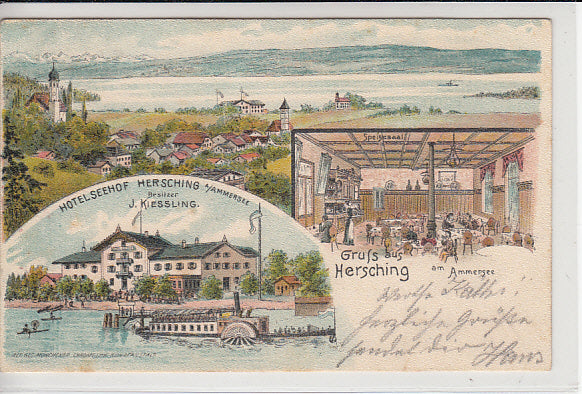 Speisesaal
HOTEL SEEHOF HERSCHING A/AMMERSEE
Besitzer
J. KIESSLING.
Gruß aus
Hersching
am Ammersee
Werthe Kathi!
herzliche Grüße
sendet dir
Hans